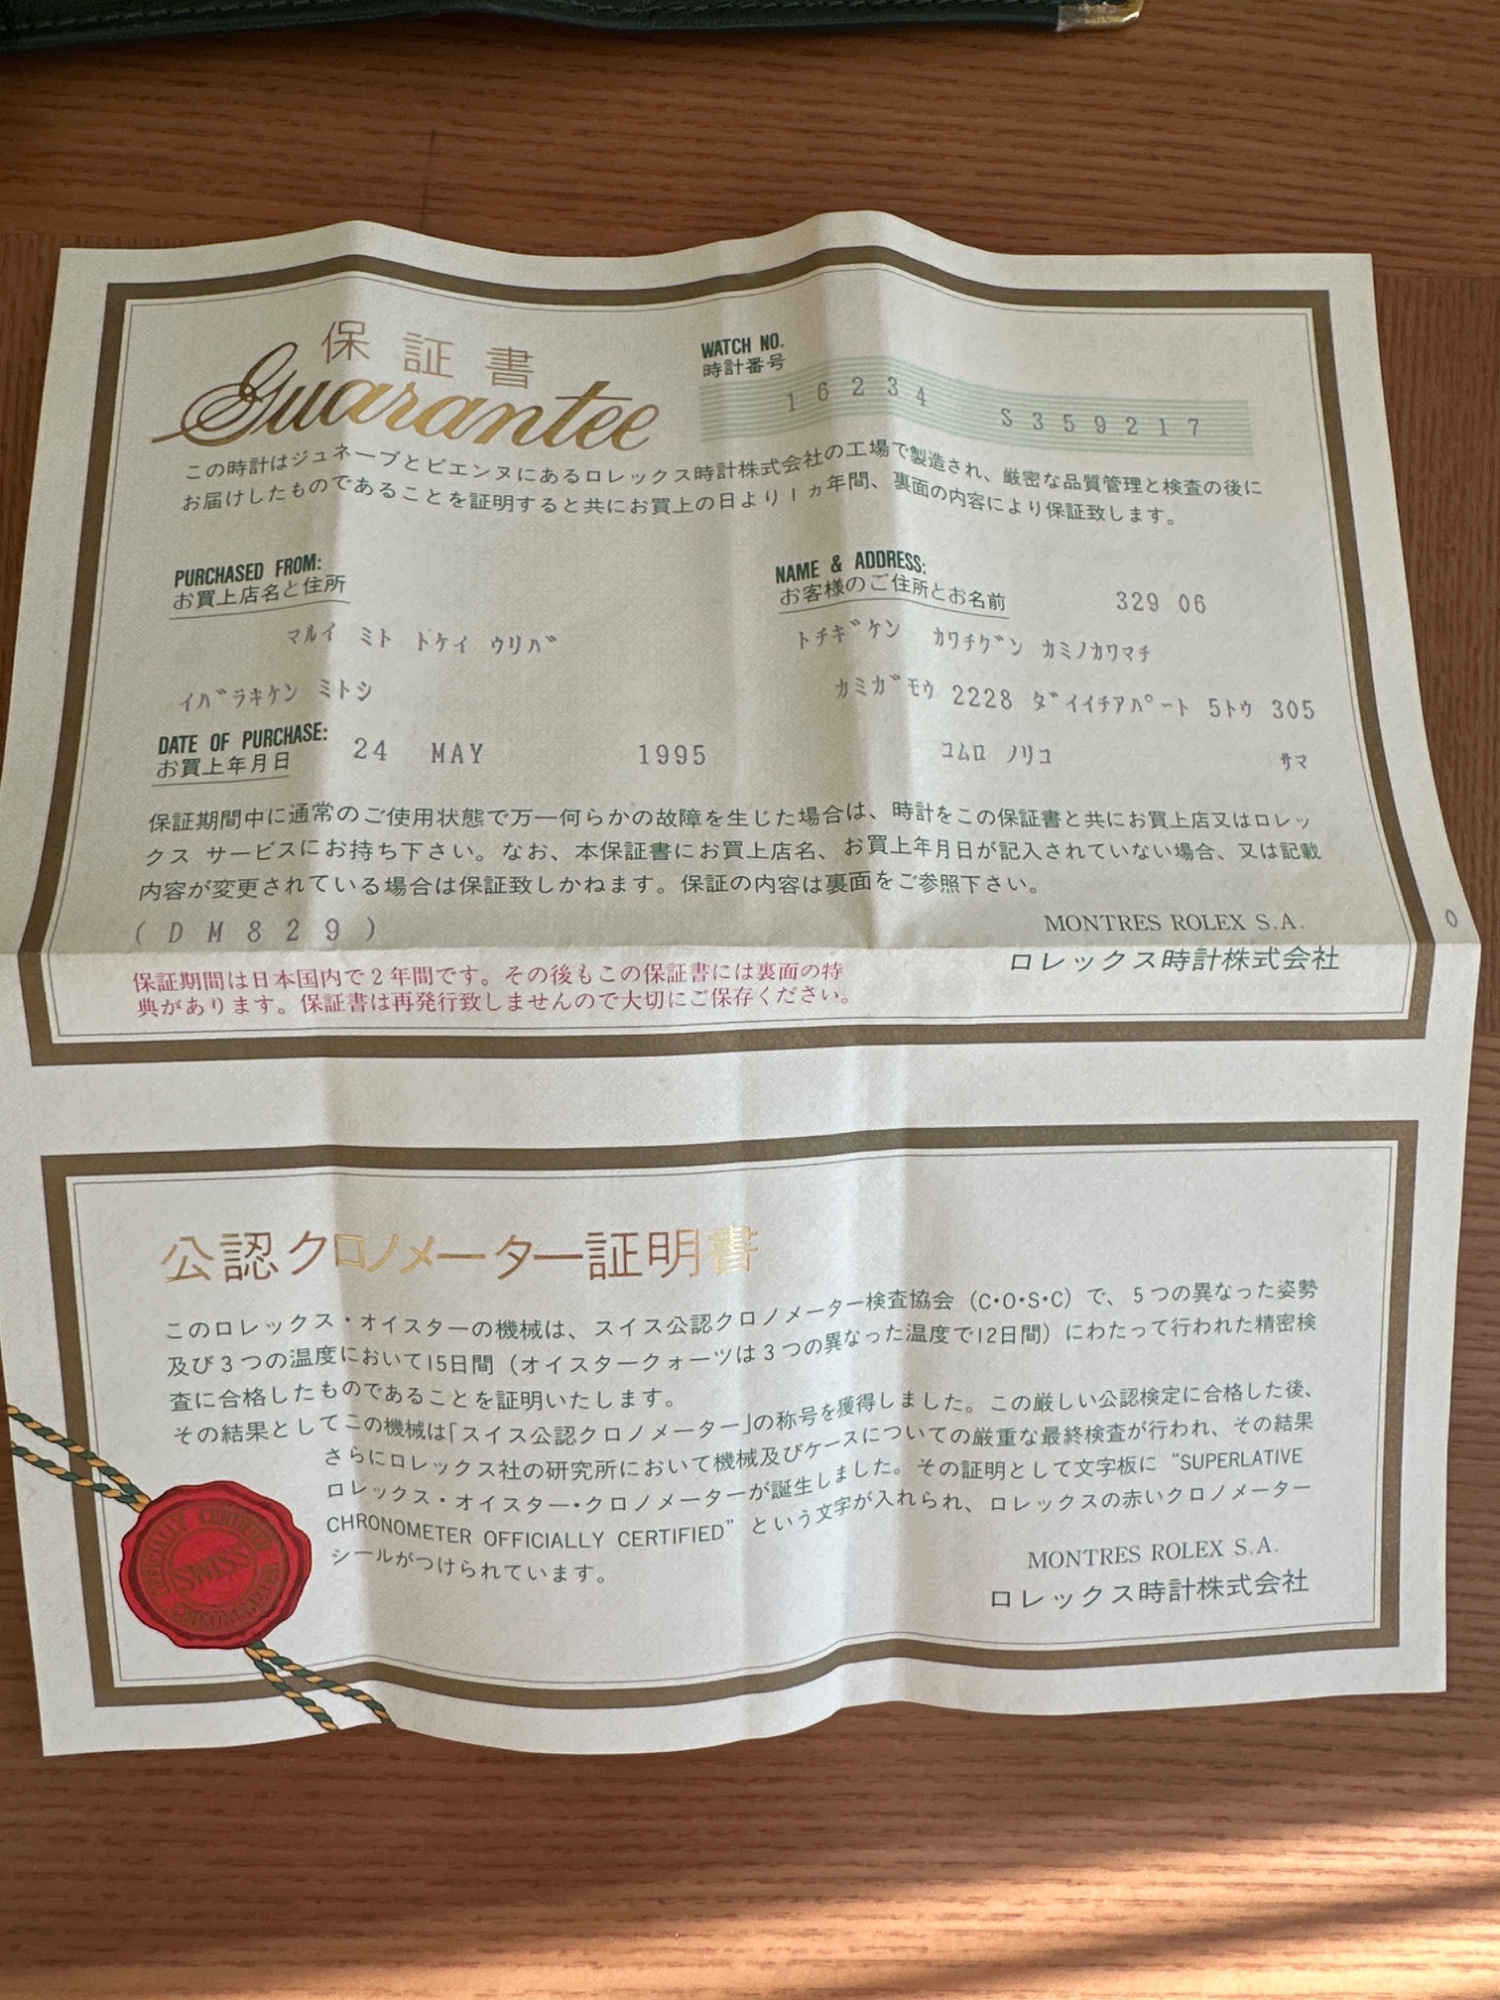 保証書
Guarantee
WATCH NO.
時計番号
16234 S359217
この時計はジュネーブとビエンヌにあるロレックス時計株式会社の工場で製造され、厳密な品質管理と検査の後に
お届けしたものであることを証明すると共にお買上の日より1ヵ年間、裏面の内容により保証致します。
PURCHASED FROM:
お買上店名と住所
マルイ ミト トケイ ウリバ
イバラキケン ミトシ
NAME & ADDRESS:
お客様のご住所とお名前
329 06
トチギケン カワチグン カミノカワマチ
カミガモウ 2228 ダイイチアパート 5トウ 305
コムロ ノリコ サマ
DATE OF PURCHASE:
お買上年月日
24 MAY 1995
保証期間中に通常のご使用状態で万一何らかの故障を生じた場合は、時計をこの保証書と共にお買上店又はロレッ
クス サービスにお持ち下さい。なお、本保証書にお買上店名、お買上年月日が記入されていない場合、又は記載
内容が変更されている場合は保証致しかねます。保証の内容は裏面をご参照下さい。
(DM829)
MONTRES ROLEX S.A.
ロレックス時計株式会社
0
保証期間は日本国内で2年間です。その後もこの保証書には裏面の特
典があります。保証書は再発行致しませんので大切にご保存ください。
公認クロノメーター証明書
このロレックス・オイスターの機械は、スイス公認クロノメーター検査協会（C・O・S・C）で、5つの異なった姿勢
及び3つの温度において15日間（オイスタークォーツは3つの異なった温度で12日間）にわたって行われた精密検
査に合格したものであることを証明いたします。
その結果としてこの機械は「スイス公認クロノメーター」の称号を獲得しました。この厳しい公認検定に合格した後、
さらにロレックス社の研究所において機械及びケースについての厳重な最終検査が行われ、その結果
ロレックス・オイスター・クロノメーターが誕生しました。その証明として文字板に “SUPERLATIVE
CHRONOMETER OFFICIALLY CERTIFIED” という文字が入れられ、ロレックスの赤いクロノメーター
シールがつけられています。
MONTRES ROLEX S.A.
ロレックス時計株式会社
SWISS